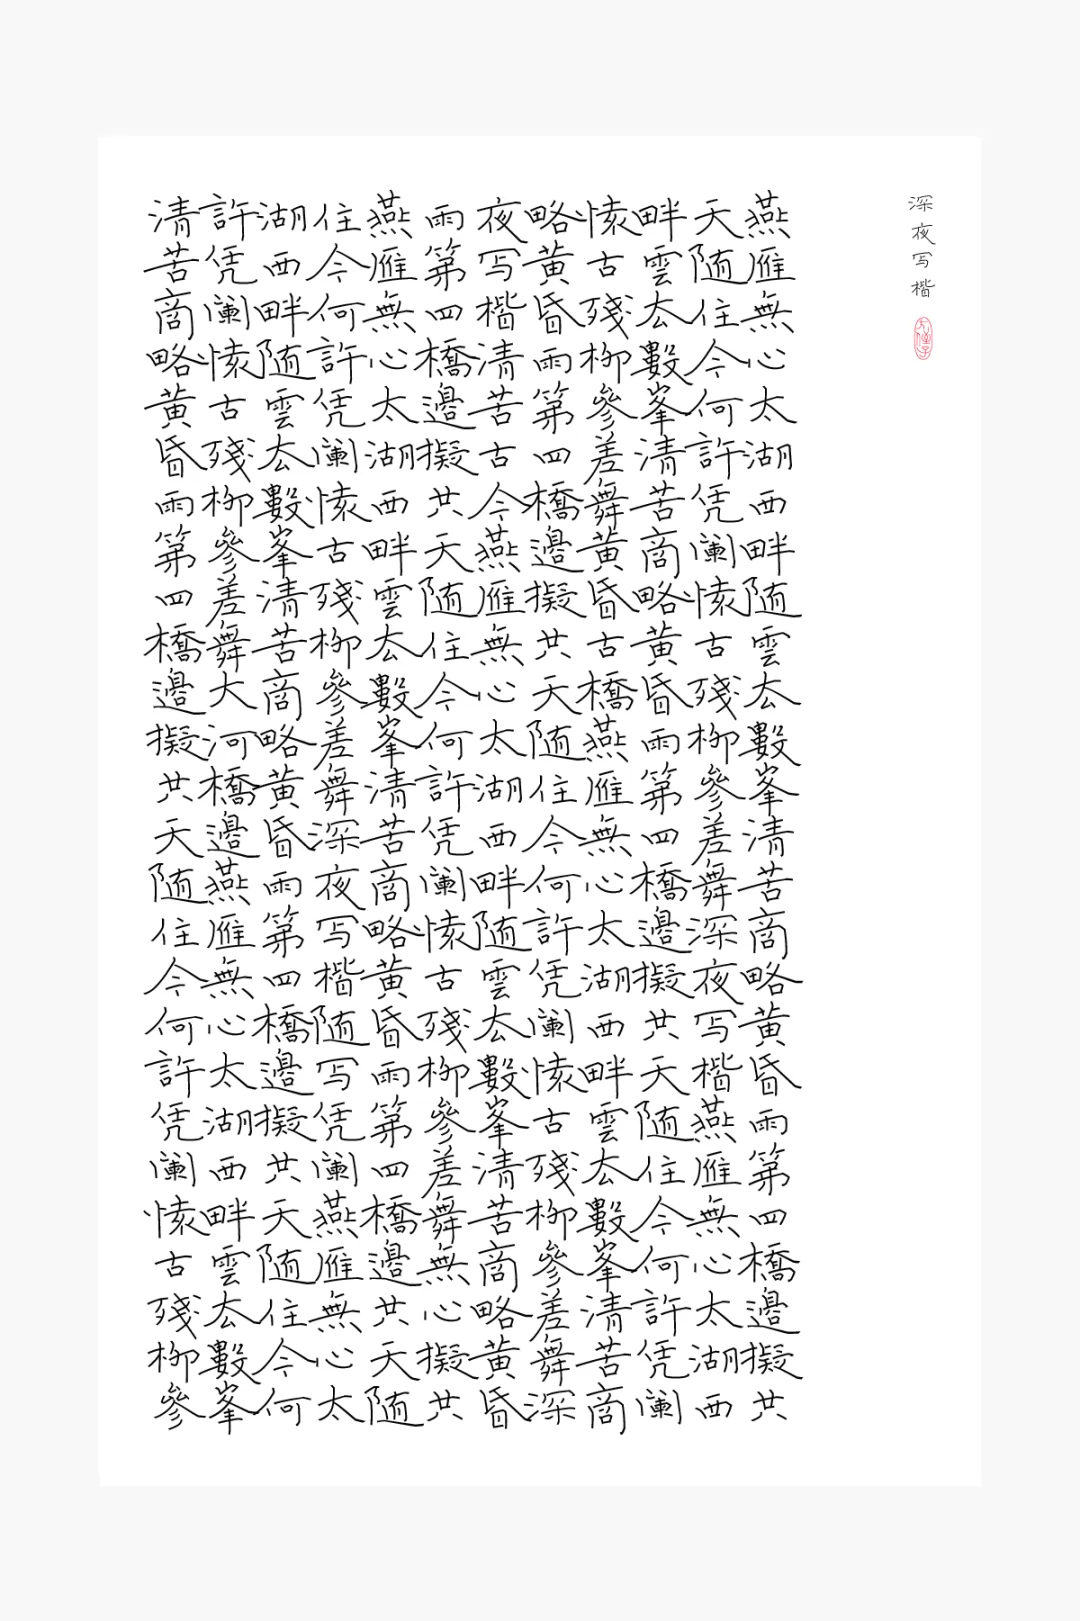 深夜写楷
燕雁無心太湖西畔随雲去數峯清苦商略黄昏雨第四橋邊擬共
天随住今何許凭阑懷古殘柳參差舞深夜写楷燕雁無心太湖西
畔雲去數峯清苦商略黄昏雨第四橋邊擬共天随住今何許凭商
懷古殘柳參差舞黄昏古橋燕雁無心太湖西畔雲去數峯清苦阑
略黄昏雨第四橋邊擬共天随住今何許凭阑懷古殘柳參差舞深
夜写楷清苦古今燕雁無心太湖西畔随雲去數峯清苦商略黄昏
雨第四橋邊擬共天随住今何許凭阑懷古殘柳參差舞無心擬共
燕雁無心太湖西畔雲去數峯清苦商略黄昏雨第四橋邊共天随
住今何許凭阑懷古殘柳參差舞深夜写楷随写凭阑燕雁無心太
湖西畔随雲去數峯清苦商略黄昏雨第四橋邊擬共天随住今何
許凭阑懷古殘柳參差舞大河橋邊燕雁無心太湖西畔雲去數峯
清苦商略黄昏雨第四橋邊擬共天随住今何許凭阑懷古殘柳參